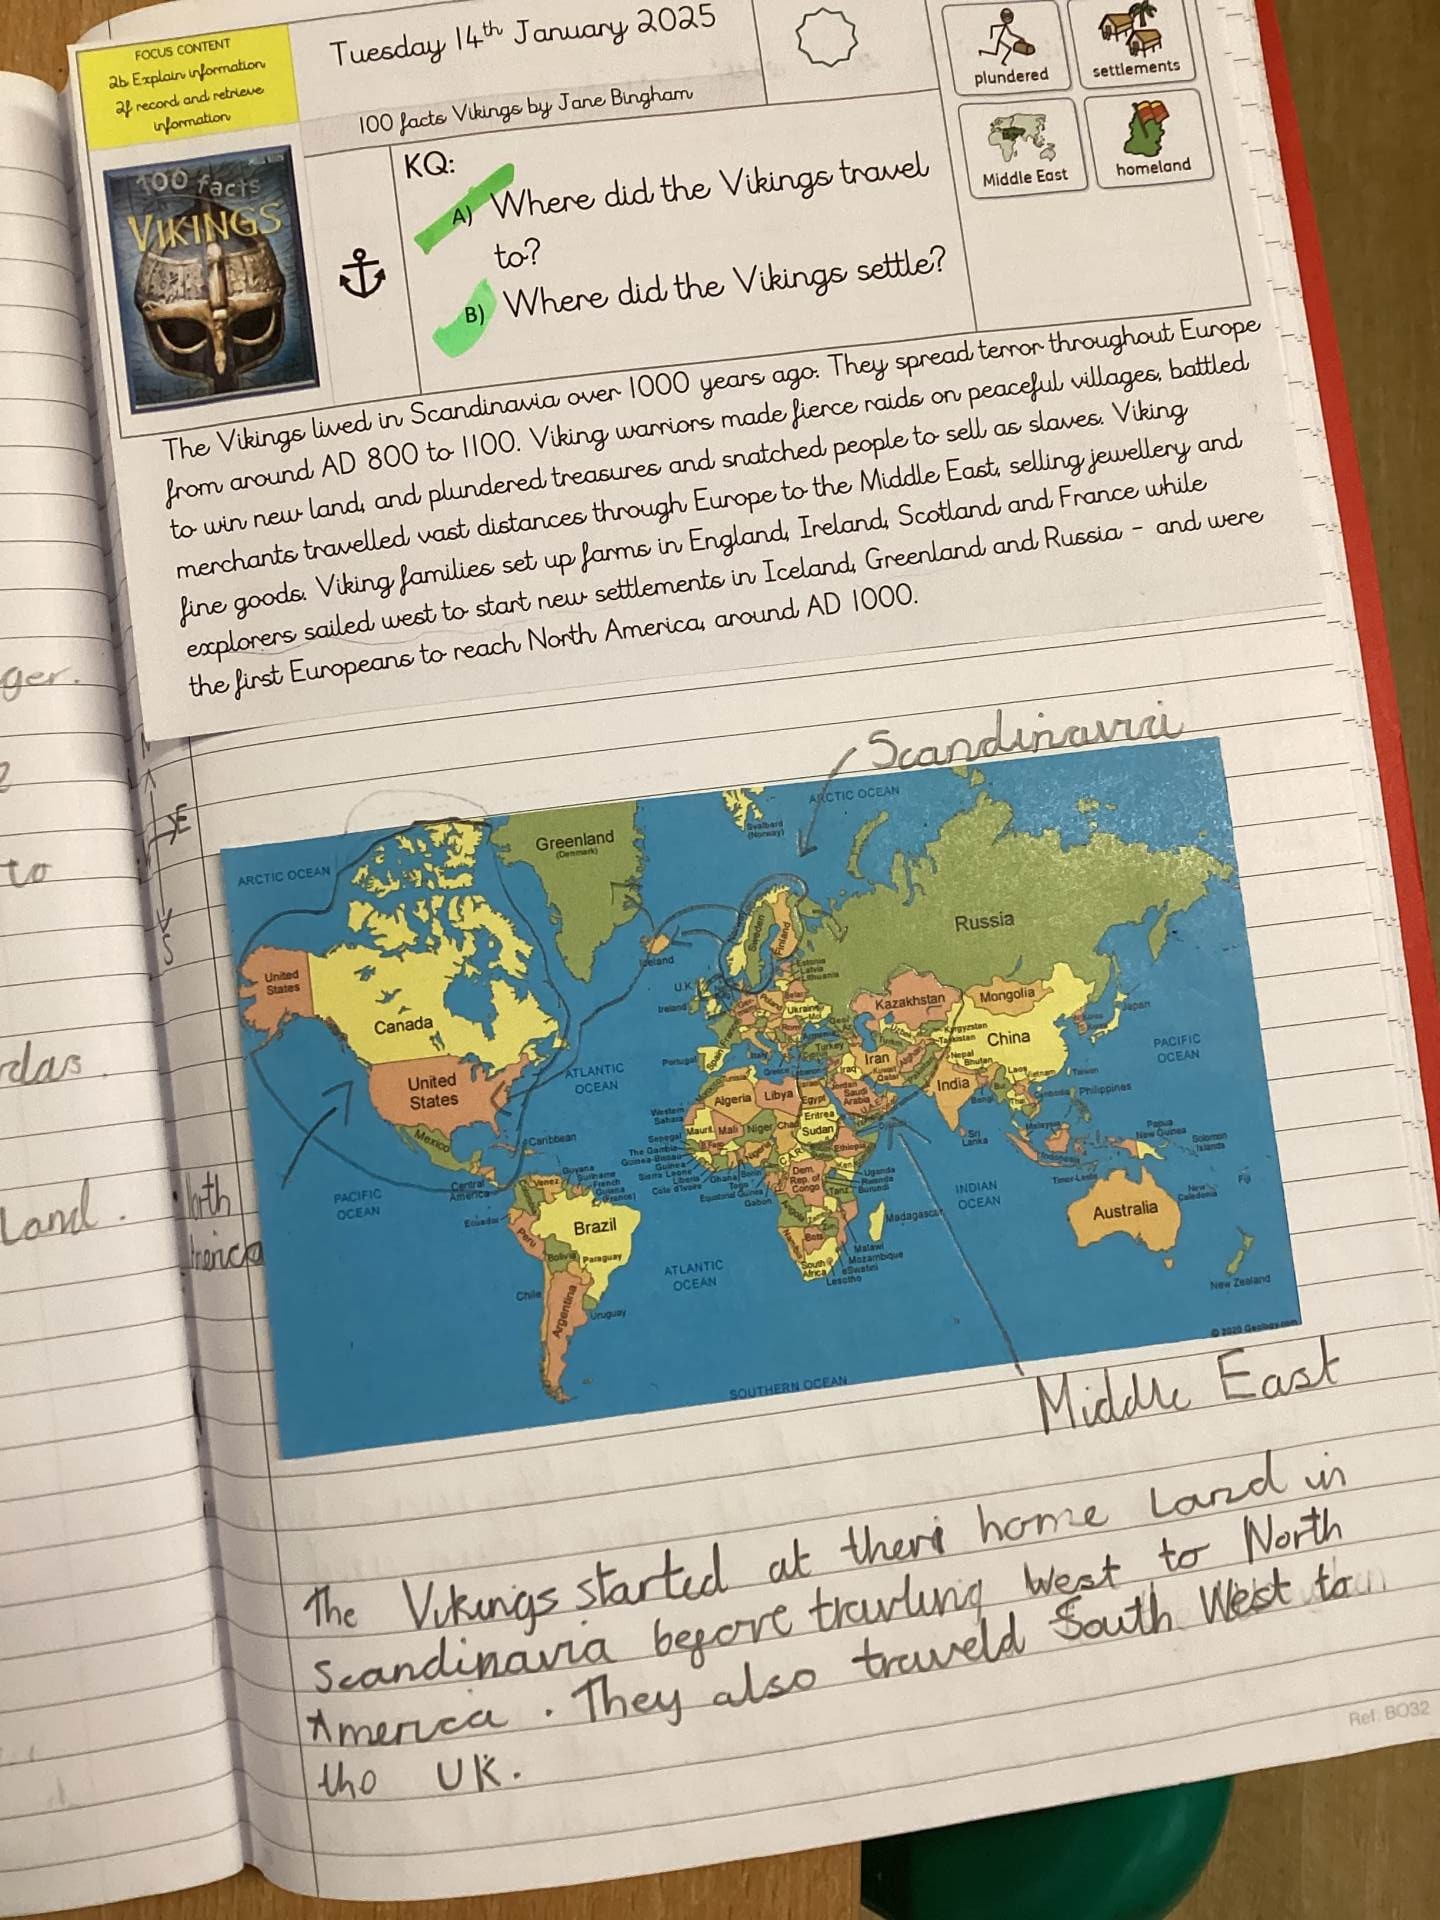 FOCUS CONTENT
2b Explain information
2f record and retrieve
information
Tuesday 14th January 2025
100 facts Vikings by Jane Bingham
plundered
settlements
Middle East
homeland
100 facts
VIKINGS
KQ:
A) Where did the Vikings travel
to?
B) Where did the Vikings settle?
The Vikings lived in Scandinavia over 1000 years ago. They spread terror throughout Europe
from around AD 800 to 1100. Viking warriors made fierce raids on peaceful villages, battled
to win new land, and plundered treasures and snatched people to sell as slaves. Viking
merchants travelled vast distances through Europe to the Middle East, selling jewellery and
fine goods. Viking families set up farms in England, Ireland, Scotland and France while
explorers sailed west to start new settlements in Iceland, Greenland and Russia - and were
the first Europeans to reach North America, around AD 1000.
ger.
to
das.
Land.
E
S
Scandinavia
ARCTIC OCEAN
Greenland
(Denmark)
Svalbard
(Norway)
ARCTIC OCEAN
Russia
United
States
Canada
Iceland
Sweden
Finland
Estonia
Latvia
Lithuania
U.K.
Ireland
Poland
Ukraine
Kazakhstan
Mongolia
Japan
United
States
ATLANTIC
OCEAN
Portugal
Spain
Italy
Turkey
Iraq
Iran
China
Kyrgyzstan
Nepal
Bhutan
PACIFIC
OCEAN
Mexico
Caribbean
Western
Sahara
Algeria
Libya
Egypt
Jordan
Saudi
Arabia
Kuwait
Qatar
India
Laos
Vietnam
Taiwan
Philippines
Mauri.
Mali
Niger
Chad
Sudan
Eritrea
Djibouti
Sri
Lanka
Malaysia
Indonesia
Papua
New Guinea
Solomon
Islands
Senegal
The Gambia
Guinea-Bissau
Guinea
Sierra Leone
Liberia
Cote d'Ivoire
Ghana
Togo
Benin
Equatorial Guinea
Gabon
Ethiopia
Uganda
Rwanda
Burundi
Dem.
Rep. of
Congo
Tanz.
PACIFIC
OCEAN
Central
America
Venez.
Guyana
Suriname
French
Guiana
(France)
Ecuador
Peru
Brazil
Bolivia
Paraguay
Chile
Argentina
Uruguay
ATLANTIC
OCEAN
Angola
Namibia
Bots.
South
Africa
Madagascar
Malawi
Mozambique
eSwatini
Lesotho
INDIAN
OCEAN
Timor-Leste
Australia
New
Caledonia
Fiji
New Zealand
SOUTHERN OCEAN
© 2020 Geology.com
North
America
Middle East
The Vikings started at theri home Land in
Scandinavia before travling West to North
America. They also traveld South West to
the UK.
Ref: BO32